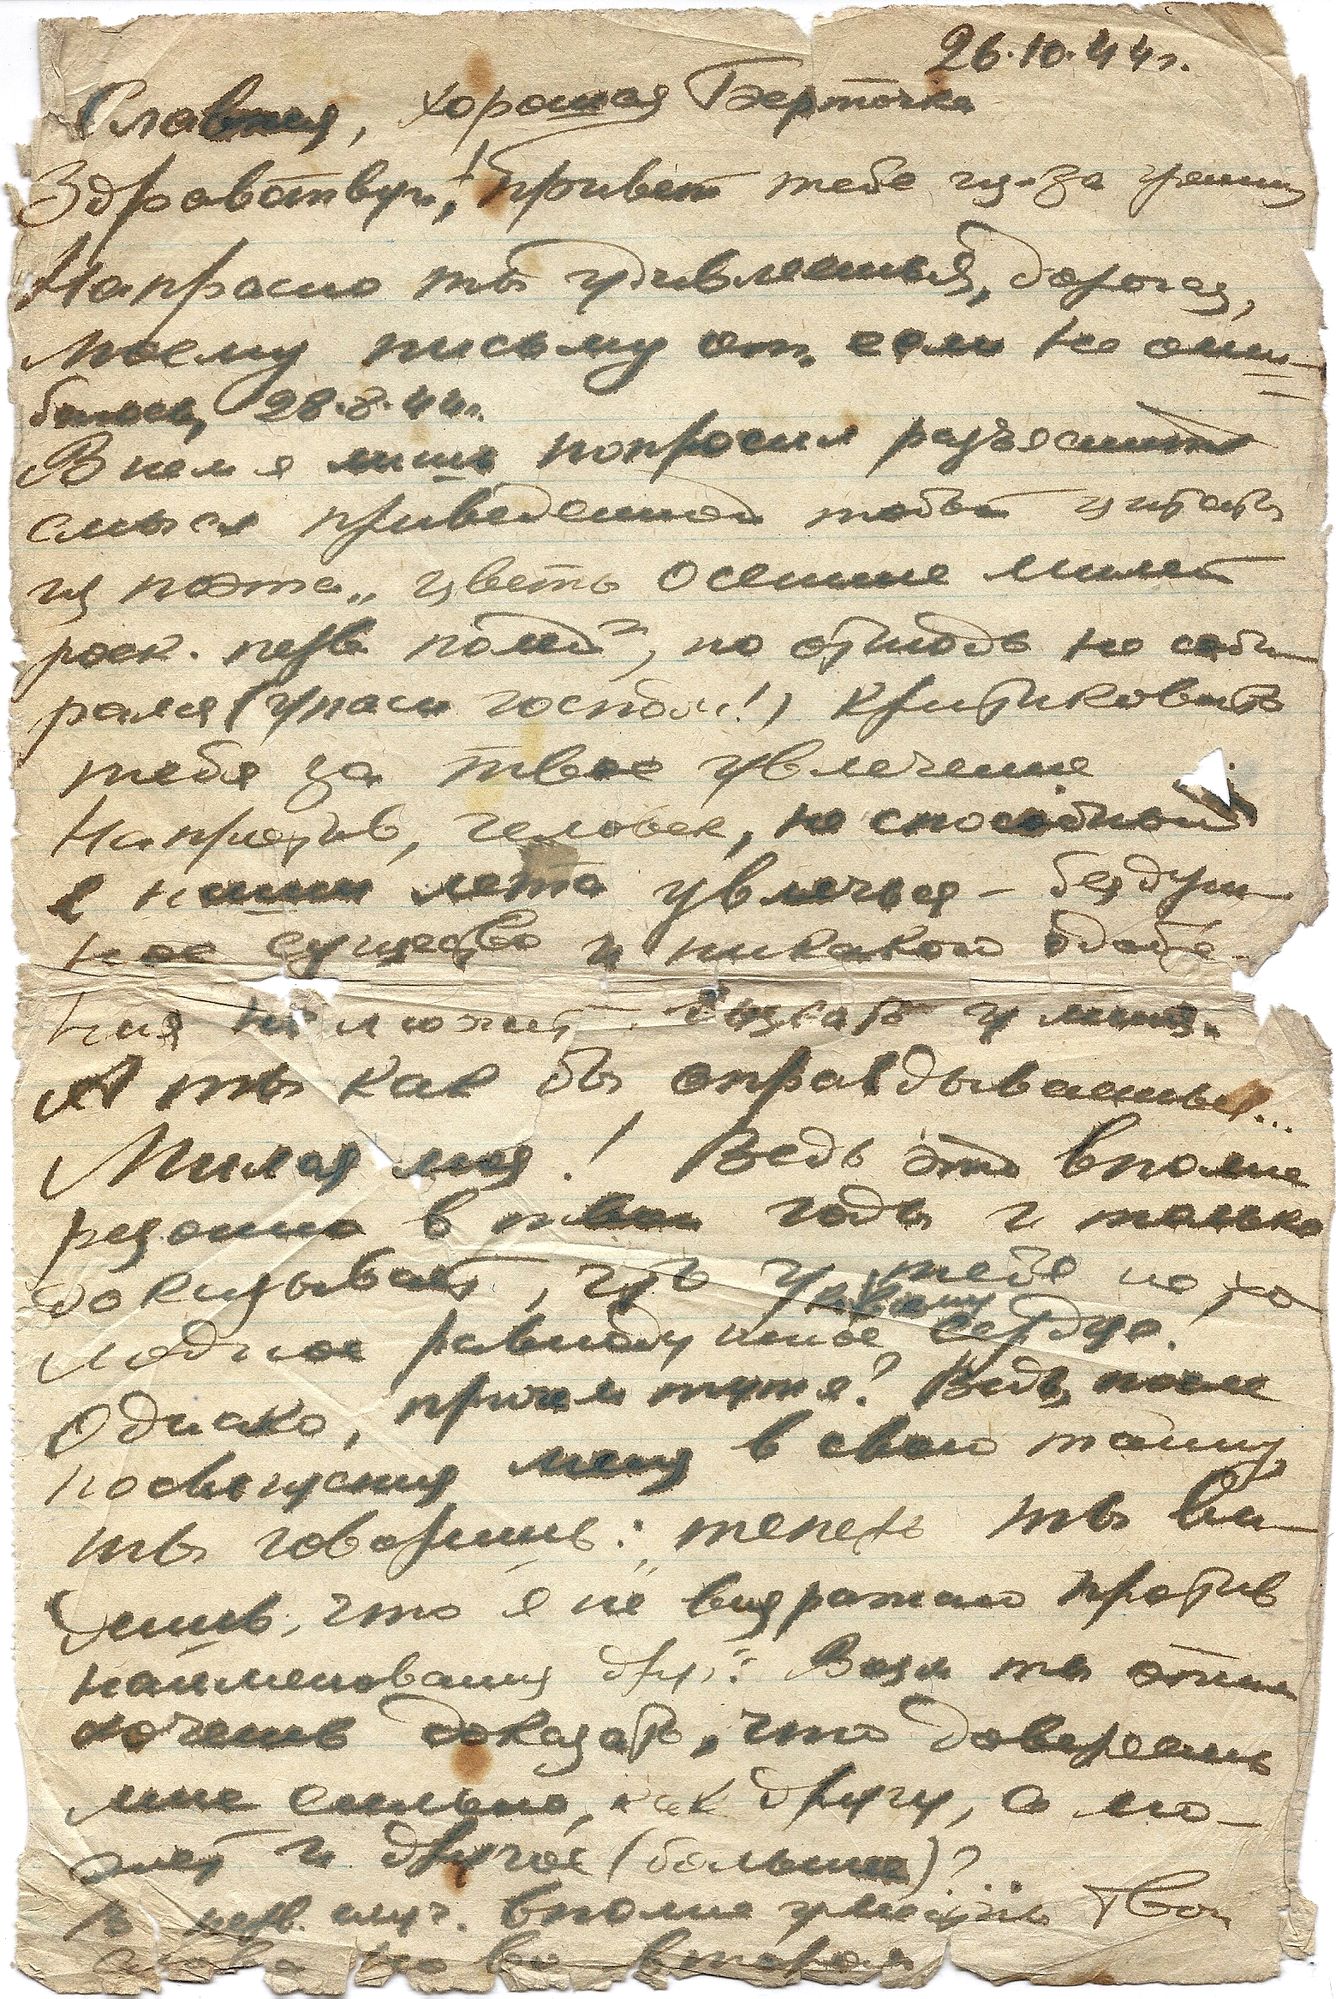 26.10.44 г.
Славная, хорошая Бэрточка
Здравствуй! Привет тебе из-за границы
Напрасно ты удивляешься, дорогая,
моему письму от, если не оши-
баюсь, 28.8.44 г.
В нем я лишь попросил разъяснить
смысл приведенной тобой цитаты
из поэта „цветы осенние милей
роск. перв полей", но отнюдь не соби-
рался (упаси господи!) критиковать
тебя за твое увлечение
Напротив, человек, не способный
в наши лета увлечься – бездуш-
ное существо и никакого
ния не может вызвать у меня.
А ты как бы оправдываешься...
Милая моя! Ведь это вполне
резонно в твои годы и только
доказывает, что у тебя не хо-
лодное равнодушное сердце!
Однако, причем тут я? Ведь, после
посвящения меня в свою тайну,
ты говоришь: „теперь ты ви-
дишь, что я не возражаю против
наименования друг". Разве ты этим
хочешь доказать, что доверяешь
мне сильно, как другу, а мо-
жет и другое (больше)?..
В перв. случ. вполне уместны твои
слова но во втором